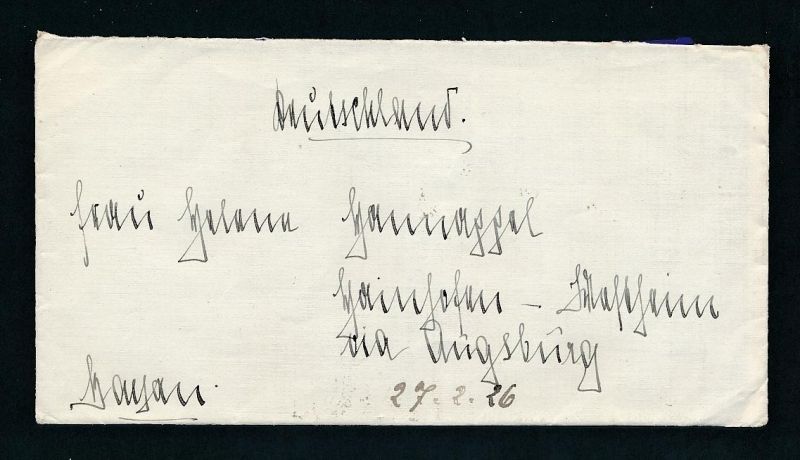 Deutschland.
Frau Helene Hannappel
Hainhofen - Westheim
via Augsburg
Bayern.
27.2.26